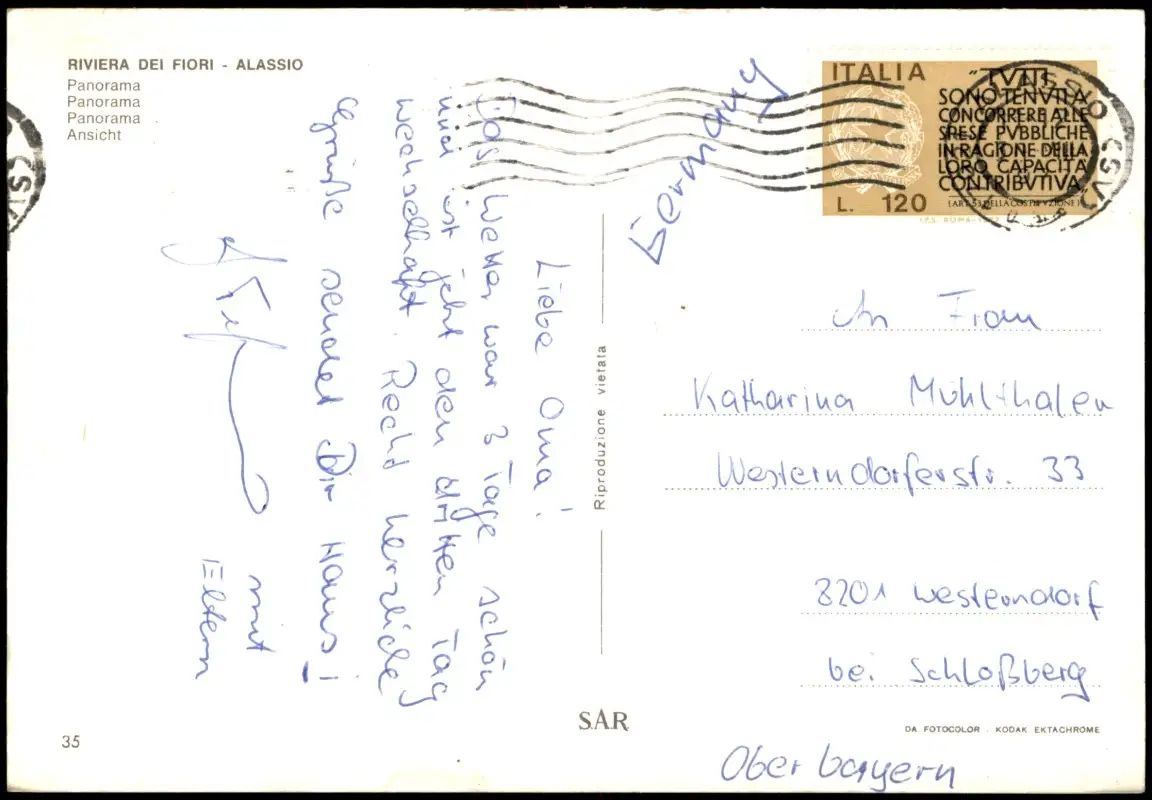 RIVIERA DEI FIORI - ALASSIO
Panorama
Panorama
Panorama
Ansicht
Liebe Oma!
Das Wetter war 3 Tage schön
und ist jetzt den dritten Tag
wechselhaft. Recht herzliche
Grüße sendet Dir Hans!
mit
Eltern
35
Riproduzione vietata
SAR
Germany
ITALIA
"TVTTI
SONO TENVTI A
CONCORRERE ALLE
SPESE PVBBLICHE
IN RAGIONE DELLA
LORO CAPACITÀ
CONTRIBVTIVA"
(ART. 53 DELLA COSTITVZIONE)
L. 120
I.P.S. ROMA-1977
An Frau
Katharina Mühlthaler
Westerndorferstr. 33
8201 Westerndorf
bei Schloßberg
DA FOTOCOLOR - KODAK EKTACHROME
Oberbayern